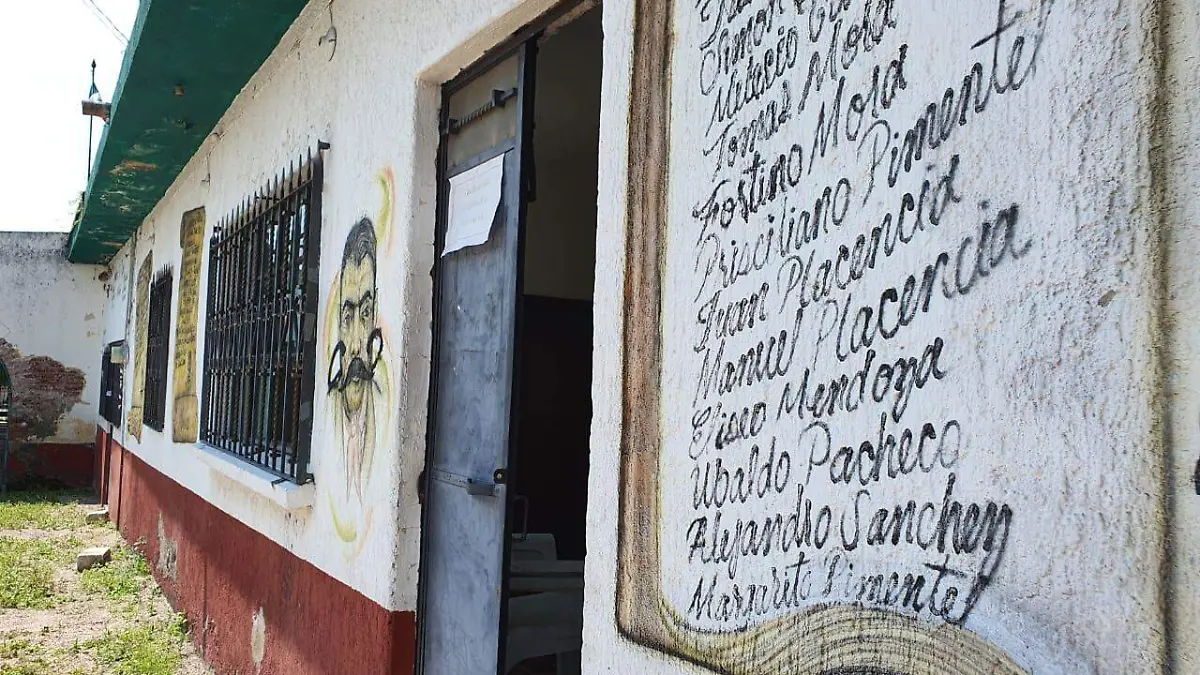 Simon
Meleci
Tomas Mora
Fostino Mora
Prisciliano Pimentel
Juan Placencia
Manuel Placencia
Eliseo Mendoza
Ubaldo Pacheco
Alejandro Sanchez
Margarito Pimentel